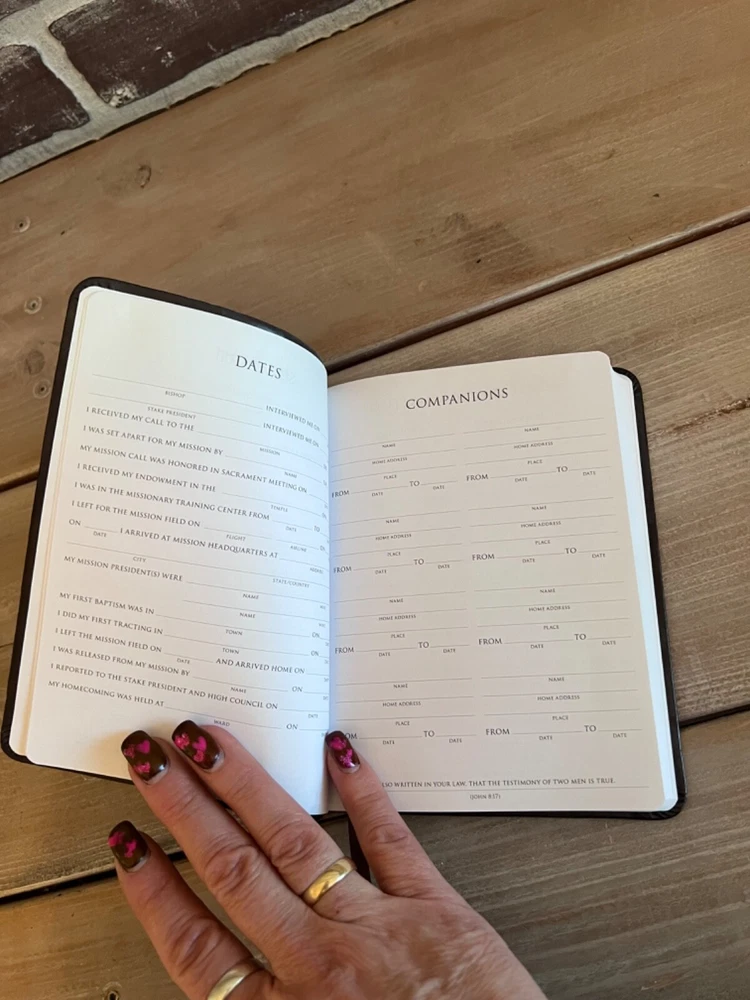 DATES
BISHOP
INTERVIEWED ME ON
STAKE PRESIDENT
INTERVIEWED ME ON
I RECEIVED MY CALL TO THE
MISSION
I WAS SET APART FOR MY MISSION BY
NAME
MY MISSION CALL WAS HONORED IN SACRAMENT MEETING ON
I RECEIVED MY ENDOWMENT IN THE
TEMPLE
I WAS IN THE MISSIONARY TRAINING CENTER FROM TO
DATE
I LEFT FOR THE MISSION FIELD ON
FLIGHT AIRLINE
ON I ARRIVED AT MISSION HEADQUARTERS AT
DATE
CITY STATE/COUNTRY
MY MISSION PRESIDENT(S) WERE
NAME
NAME
MY FIRST BAPTISM WAS IN ON
TOWN
I DID MY FIRST TRACTING IN ON
TOWN
I LEFT THE MISSION FIELD ON AND ARRIVED HOME ON
DATE
I WAS RELEASED FROM MY MISSION BY ON
NAME
I REPORTED TO THE STAKE PRESIDENT AND HIGH COUNCIL ON
DATE
MY HOMECOMING WAS HELD AT ON
WARD
COMPANIONS
NAME NAME
HOME ADDRESS HOME ADDRESS
PLACE PLACE
FROM TO FROM TO
DATE DATE DATE DATE
NAME NAME
HOME ADDRESS HOME ADDRESS
PLACE PLACE
FROM TO FROM TO
DATE DATE DATE DATE
NAME NAME
HOME ADDRESS HOME ADDRESS
PLACE PLACE
FROM TO FROM TO
DATE DATE DATE DATE
NAME NAME
HOME ADDRESS HOME ADDRESS
PLACE PLACE
TO FROM TO
DATE DATE DATE DATE
WRITTEN IN YOUR LAW, THAT THE TESTIMONY OF TWO MEN IS TRUE.
(JOHN 8:17)